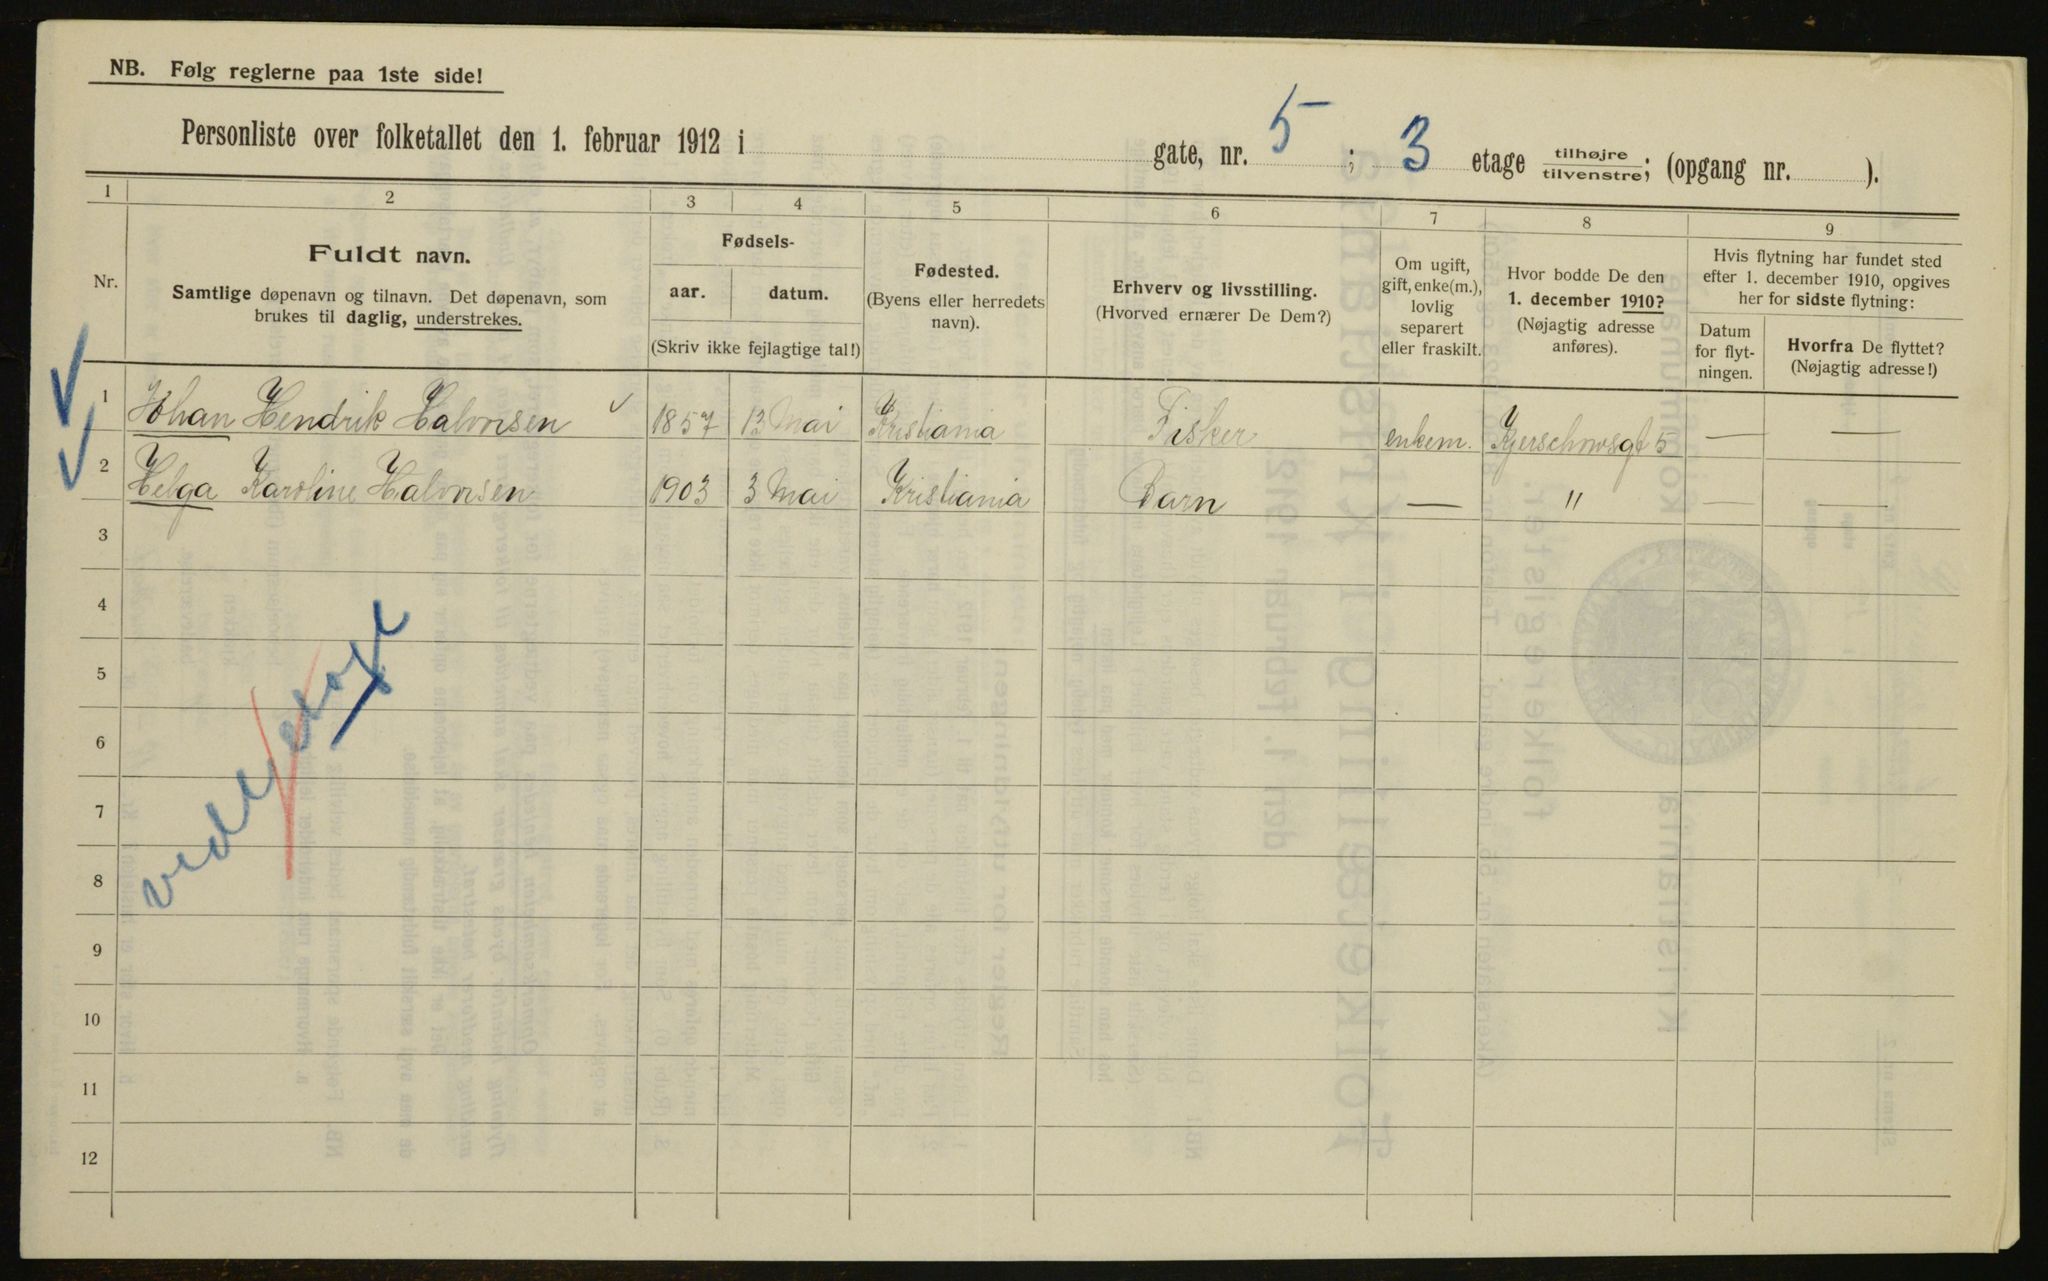 NB. Følg reglerne paa 1ste side!
Personliste over folketallet den 1. februar 1912 i gate, nr. 5; 3 etage tilhøjre tilvenstre; (opgang nr. ).
1 2 3 4 5 6 7 8 9
Nr.
Fuldt navn.
Samtlige døpenavn og tilnavn. Det døpenavn, som
brukes til daglig, understrekes.
Fødsels-
aar. datum.
(Skriv ikke fejlagtige tal!)
Fødested.
(Byens eller herredets
navn).
Erhverv og livsstilling.
(Hvorved ernærer De Dem?)
Om ugift,
gift, enke(m.),
lovlig
separert
eller fraskilt.
Hvor bodde De den
1. december 1910?
(Nøjagtig adresse
anføres).
Hvis flytning har fundet sted
efter 1. december 1910, opgives
her for sidste flytning:
Datum
for flyt-
ningen.
Hvorfra De flyttet?
(Nøjagtig adresse!)
1 Johan Hendrik Halvorsen 1857 13 Mai Kristiania Fisker enkem. Kjerschowsgt 5 — —
2 Helga Karoline Halvorsen 1903 3 Mai Kristiania Barn — " — —
3
4
5
6
7
8
9
10
11
12